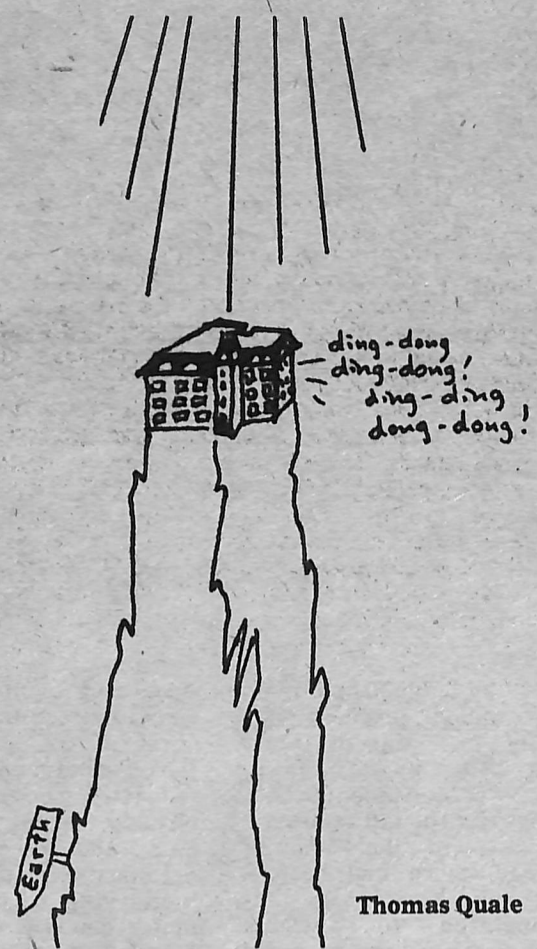 ding-dong
ding-dong!
ding-ding
dong-dong!
Earth
Thomas Quale